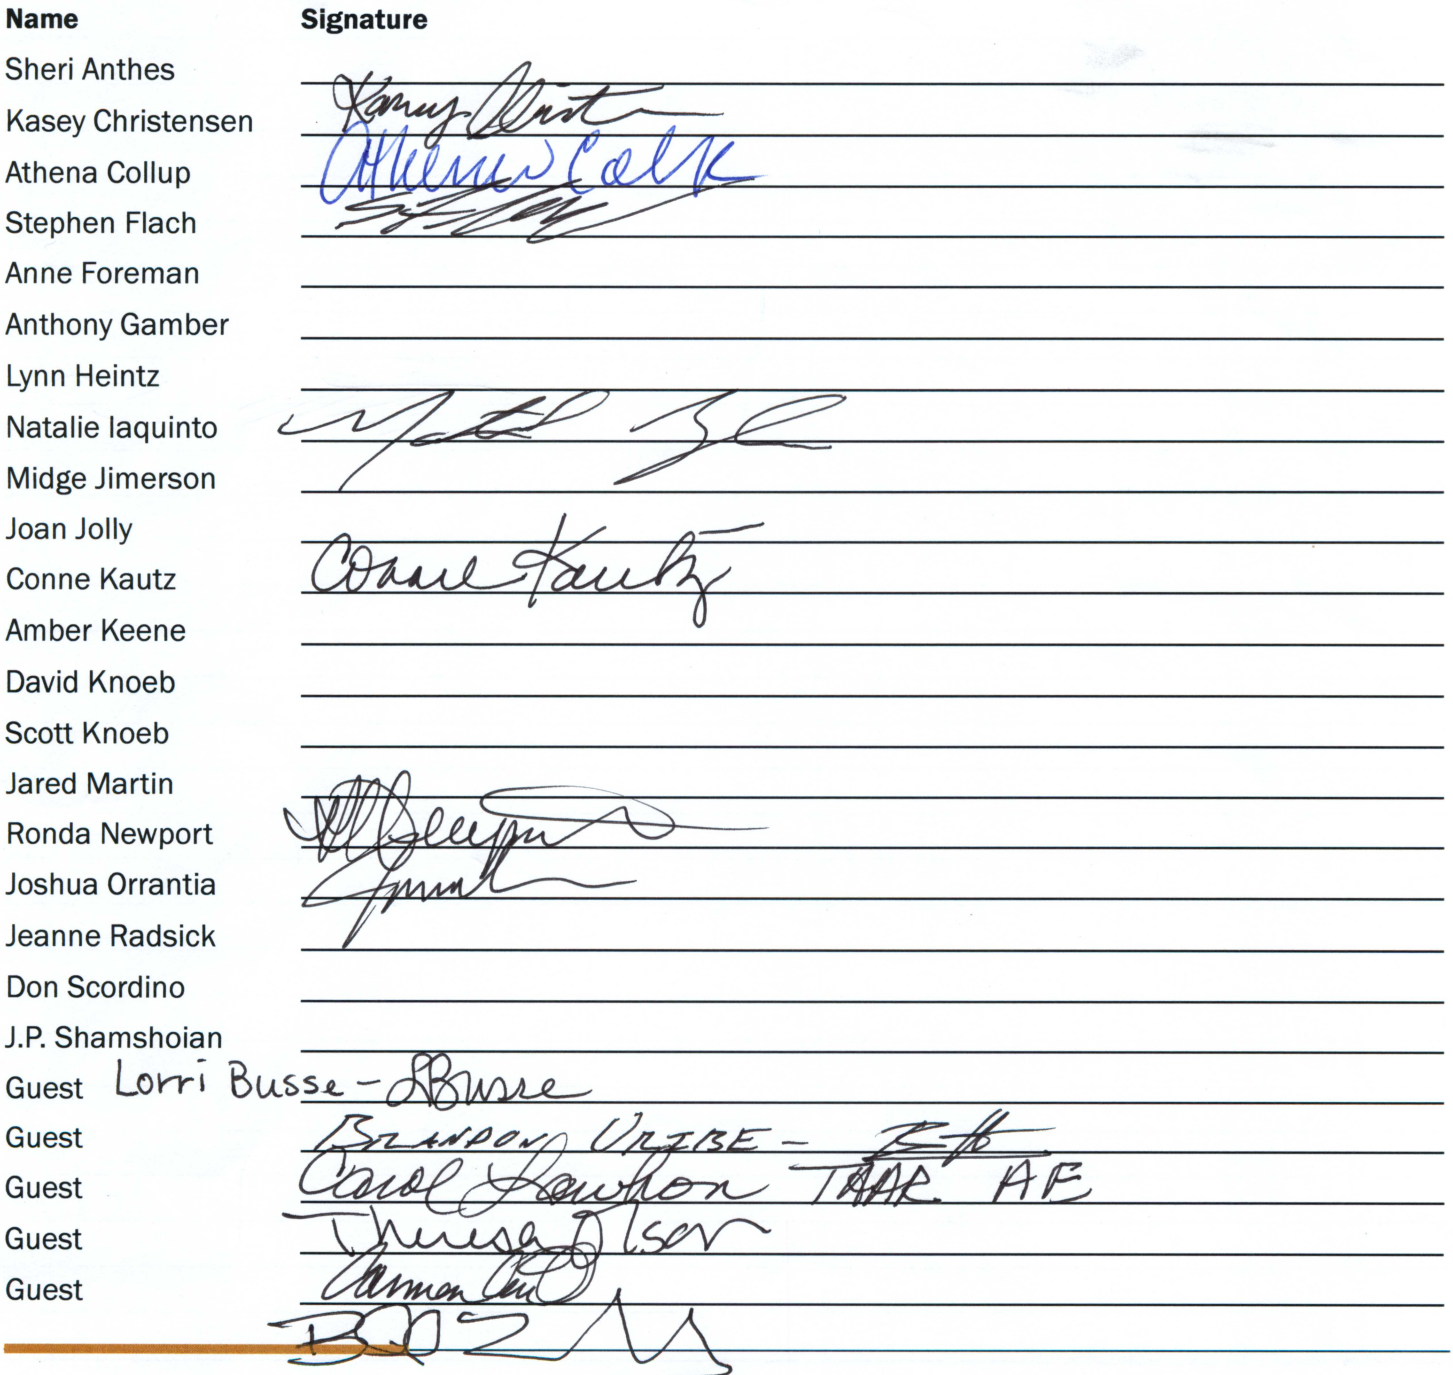 Name Signature
Sheri Anthes
Kasey Christensen Kasey
Athena Collup Athena
Stephen Flach
Anne Foreman
Anthony Gamber
Lynn Heintz
Natalie Iaquinto
Midge Jimerson
Joan Jolly
Conne Kautz Connie Kautz
Amber Keene
David Knoeb
Scott Knoeb
Jared Martin
Ronda Newport
Joshua Orrantia
Jeanne Radsick
Don Scordino
J.P. Shamshoian
Guest Lorri Busse - LBusse
Guest BRANDON URIBE -
Guest Carol Lawhon TAAR AE
Guest Theresa Olson
Guest Carmen